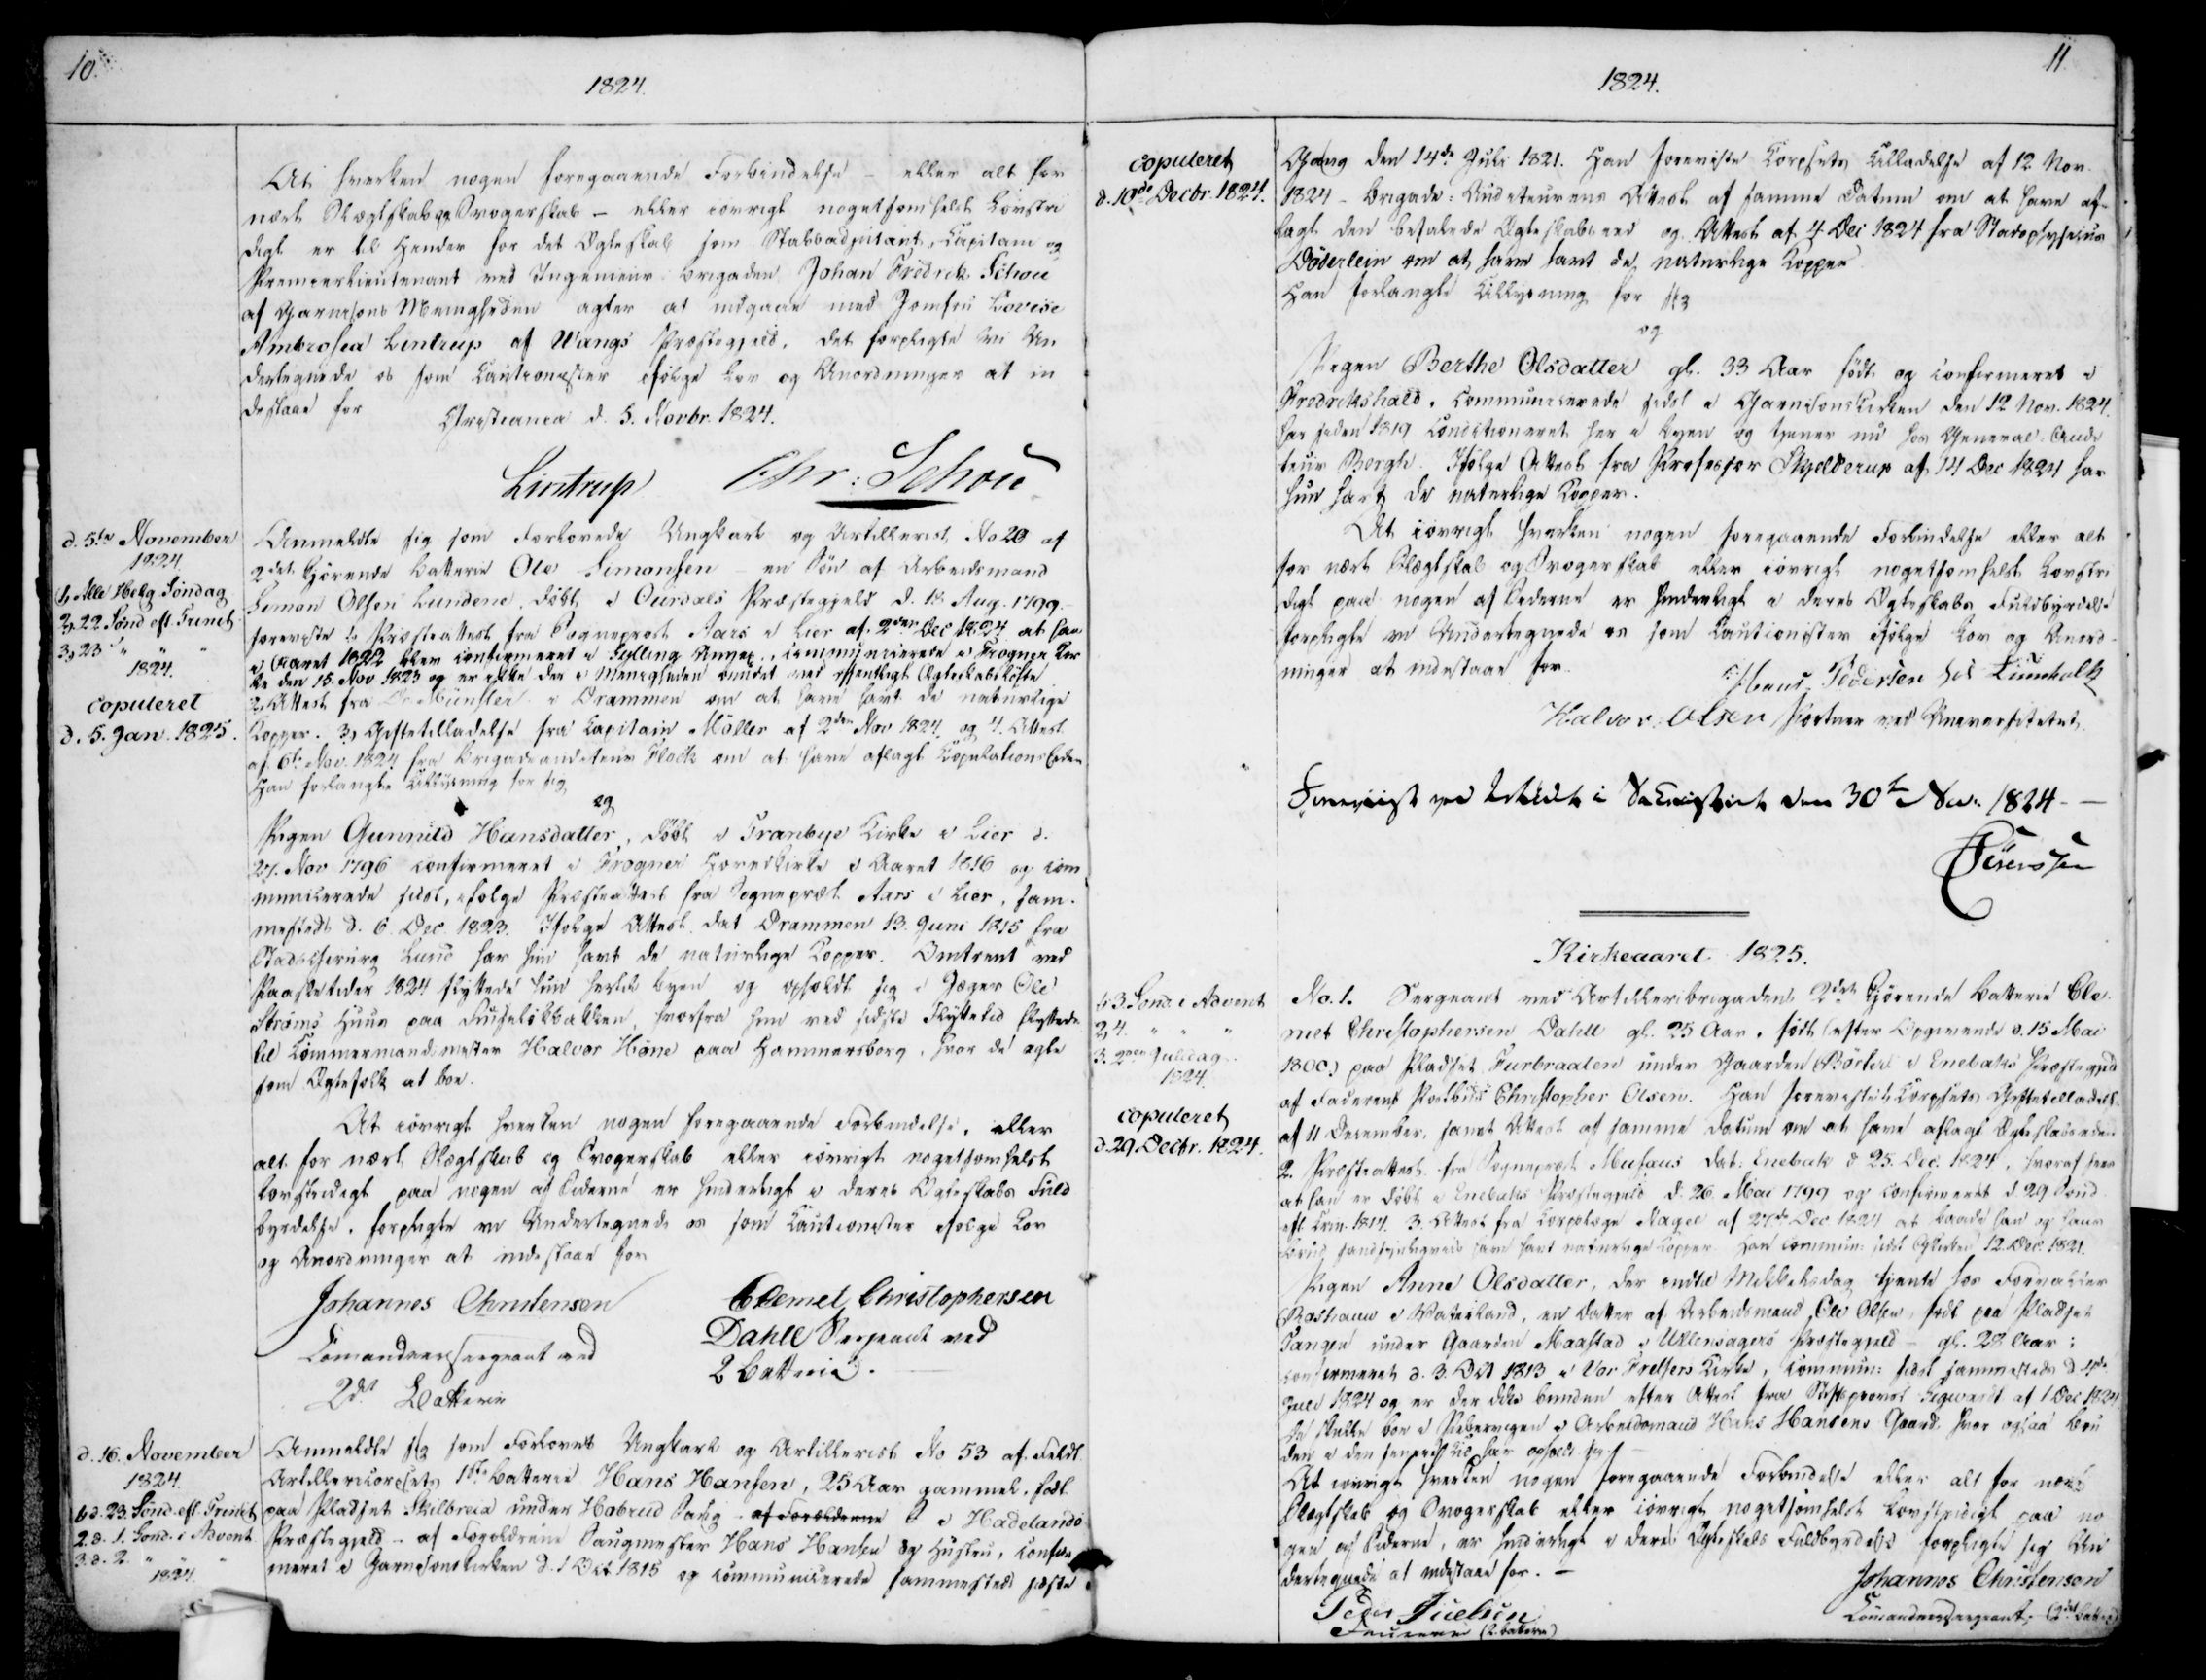 10.
1824.
At hverken nogen foregaaende Forbindelse – eller alt for
nært Slægtskab og Svogerskab – eller iøvrigt nogetsomhelst Lovstri
digt er til Hinder for det Ægteskab som Stabsadjutant, Capitain og
Premierlieutenant ved Ingenieur brigaden Johan Fredrik Schou
af Garnisons Menigheden agter at indgaae med Jomfru Lovise
Ambrosea Lintrup af Wangs Præstegjeld, det forpligte vi Un
dertegnede os som Cautionister ifølge Lov og Anordninger at in
destaae for
Christiania d. 5. Novbr. 1824.
Lintrup Chr: Schou
d. 5te November
1824.
1, Alle Helg. Söndag
2, 22 Sönd eft. Trinit.
3, 23 " " "
1824.
copuleret
d. 5. Jan. 1825.
Anmeldte sig som Forlovede Ungkarl og Artillerist No 20 af
2det Kjörende Batterie Ole Simonsen – en Sön af Arbeidsmand
Simon Olsen Lundene, döbt i Ourdals Præstegjeld d. 18 Aug. 1799.
foreviste 1, Præsteattest fra Sogneprest Aars i Lier af 2den Dec 1824 at han
i Aaret 1822 blev confirmeret i Sylling Annex, communicerede i Frogner Kir
ke den 15. Nov 1823 og er ikke der i Menigheden bundet ved offentligt Ægteskabslöfte
2, Attest fra Dr. Münster i Drammen om at have havt de naturlige
Kopper. 3, Giftetilladelse fra Capitain Möller af 2den Nov 1824. og 4. Attest
af 6te Nov. 1824 fra Brigadeauditeur Flock om at have aflagt Copulations Eden
Han forlangte Tillysning for sig
og
Pigen Gunnild Hansdatter, döbt i Tranbye Kirke i Lier d.
27. Nov 1796 confirmeret i Frogner Hovedkirke i Aaret 1816 og com
municerede sidst, ifølge Præsteattest fra Sognepræst Aars i Lier, sam-
mesteds d. 6 Dec. 1823. Ifølge Attest dat Drammen 13. Juni 1815 fra
Stadschirurg Lund har hun havt de naturlige Kopper. Omtrent ved
Paasketider 1824 flyttede hun hertil Byen og opholdt sig i Jæger Ole
Ströms Huus paa Fuseløkbakken, hvorfra hun ved sidste Flyttetid flyttede
til Tömmermandsmester Halvor Höne paa Hammersborg, hvor de agte
som Ægtefolk at boe.
At iøvrigt hverken nogen foregaaende Forbindelse, eller
alt for nært Slægtskab og Svogerskab eller iøvrigt nogetsomhelst
lovstridigt paa nogen af Siderne er hinderligt i deres Ægteskabs Fuld
byrdelse, forpligte vi Undertegnede os som Cautionister ifølge Lov
og Anordninger at indestaae for
Johannes Christensen
Comandeersergeant ved
2det Batterie
Clemet Christophersen
Dahll Sergeant ved
2 Batterie.
d. 16. November
1824.
1, d. 23. Sönd. eft. Trinit.
2. d. 1. Sönd. i Advent
3. d. 2. " " "
1824.
Anmeldte sig som Forlovet Ungkarl og Artillerist No 53 af Feldt
Artillericorpsets 1ste Batterie Hans Hansen, 25 Aar gammel, födt
paa Pladset Skilbreia under Hobrud i Hadelands
Præstegjeld – af Forældrene Saugmester Hans Hansen og Hustru, confir
meret i Garnisonskirken d. 1 Oct 1815 og communicerede sammesteds sidste
11.
1824.
copuleret
d. 10de Decbr. 1824.
Gang den 14de Juli 1821. Han foreviste Corpsets Tilladelse af 12 Nov.
1824 – Brigade: Auditeurens Attest af samme Datum om at have af-
lagt den befalede Ægteskabseed og Attest af 4 Dec 1824 fra Stadsphysicus
Döderlein om at have havt de naturlige Kopper.
Han forlangte Tillysning for sig
og
Pigen Berthe Olsdatter gl. 33 Aar födt og confirmeret i
Fredrikshald. Communicerede sidst i Garnisonskirken den 12 Nov. 1824.
har siden 1819 Conditioneret her i Byen og tjener nu hos General-Audi
teur Bergh. Ifølge Attest fra Professor Skjelderup af 14 Dec 1824 har
hun havt de naturlige Kopper.
At iøvrigt hverken nogen foregaaende Forbindelse eller alt
for nært Slægtskab og Svogerskab eller iøvrigt nogetsomhelst Lovstri
digt paa nogen af Siderne er hinderligt i deres Ægteskabs Fuldbyrdelse
forpligte vi Undertegnede os som Cautionister ifølge Lov og Anord-
ninger at indestaae for.
Pedersen
Halvor Olsen Portner ved Universitetet.
Foreviist ved i Sacristiet den 30te Nov. 1824 –
Kirkeaaret 1825.
1, 3. Sönd. i Advent
2, 4. " " "
3. 2den Juledag
1824.
copuleret
d. 29. Decbr. 1824.
No. 1. Sergeant ved Artilleribrigadens 2det Kjörende Batterie Cle-
met Christophersen Dahll gl. 25 Aar, födt (efter Opgivende d. 15 Mai
1800) paa Pladset Furbraaten under Gaarden Börter i Enebaks Præstegjeld
af Faderen Christopher Olsen. Han foreviste 1, Corpsets Giftetilladelse
af 11 December, samt Attest af samme Datum om at have aflagt Ægteskabseden
2. Præsteattest fra Sogneprest Musæus dat: Enebak d 25. Dec. 1824, hvoraf sees
at han er döbt i Enebaks Præstegjeld d. 26. Mai 1799 og confirmeret d. 29 Sönd
eft. Trin. 1814. 3. Attest fra Corpslæge Nagel af 27de Dec 1824 at baade han og hans
Brud sandsynligviis have havt naturlige Kopper. Han commun: sidst 12. Dec. 1821.
Pigen Anne Olsdatter, der indtil Mikkelsdag tjente hos Forvalter
Roshauw i Waterland, en Datter af Arbeidsmand Ole Olsen, födt paa Pladset
Tangen under Gaarden Maastad i Ullensagers Præstegjeld – gl. 28 Aar;
confirmeret d. 3. Oct 1813 i Vor Frelsers Kirke, commun: sidst sammesteds d. 4de
Juli 1824 og er der ikke bunden efter Attest fra Stiftsprovst Sigwardt af 1 Dec 1824.
De skulle boe i Pibervigen i Arbeidsmand Hans Hansens Gaard, hvor ogsaa Bru
den i den seneste Tid har opholdt sig.
At iøvrigt hverken nogen foregaaende Forbindelse eller alt for nært
Slægtskab og Svogerskab eller iøvrigt nogetsomhelst Lovstridigt paa no
gen af Siderne, er hinderligt i deres Ægteskabs Fuldbyrdelse forpligte sig Un
dertegnede at indestaae for. –
Peder
(2. batterie)
Johannes Christensen
Comandeersergeant, (2det Batterie)